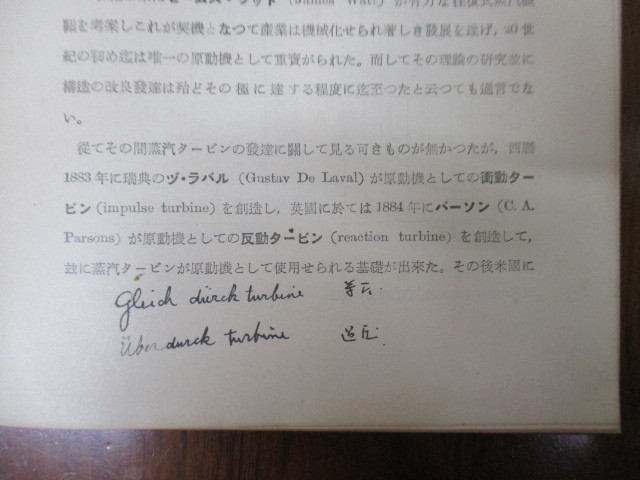 (James Watt) が有力なる往復式蒸汽機
關を考案しこれが契機となつて產業は機械化せられ著しき發展を遂げ，20世
紀の初め迄は唯一の原動機として重寶がられた。而してその理論の研究並に
構造の改良發達は殆どその極に達する程度に迄至つたと云つても過言でな
い。
從てその間蒸汽タービンの發達に關して見る可きものが無かつたが，西曆
1883年に瑞典のヅ・ラバル (Gustav De Laval) が原動機としての衝動ター
ビン (impulse turbine) を創造し，英國に於ては 1884 年にパーソン (C. A.
Parsons) が原動機としての反動タービン (reaction turbine) を創造して，
玆に蒸汽タービンが原動機として使用せられる基礎が出來た。その後米國に
Gleich dürck turbine 等圧.
Überdurck turbine